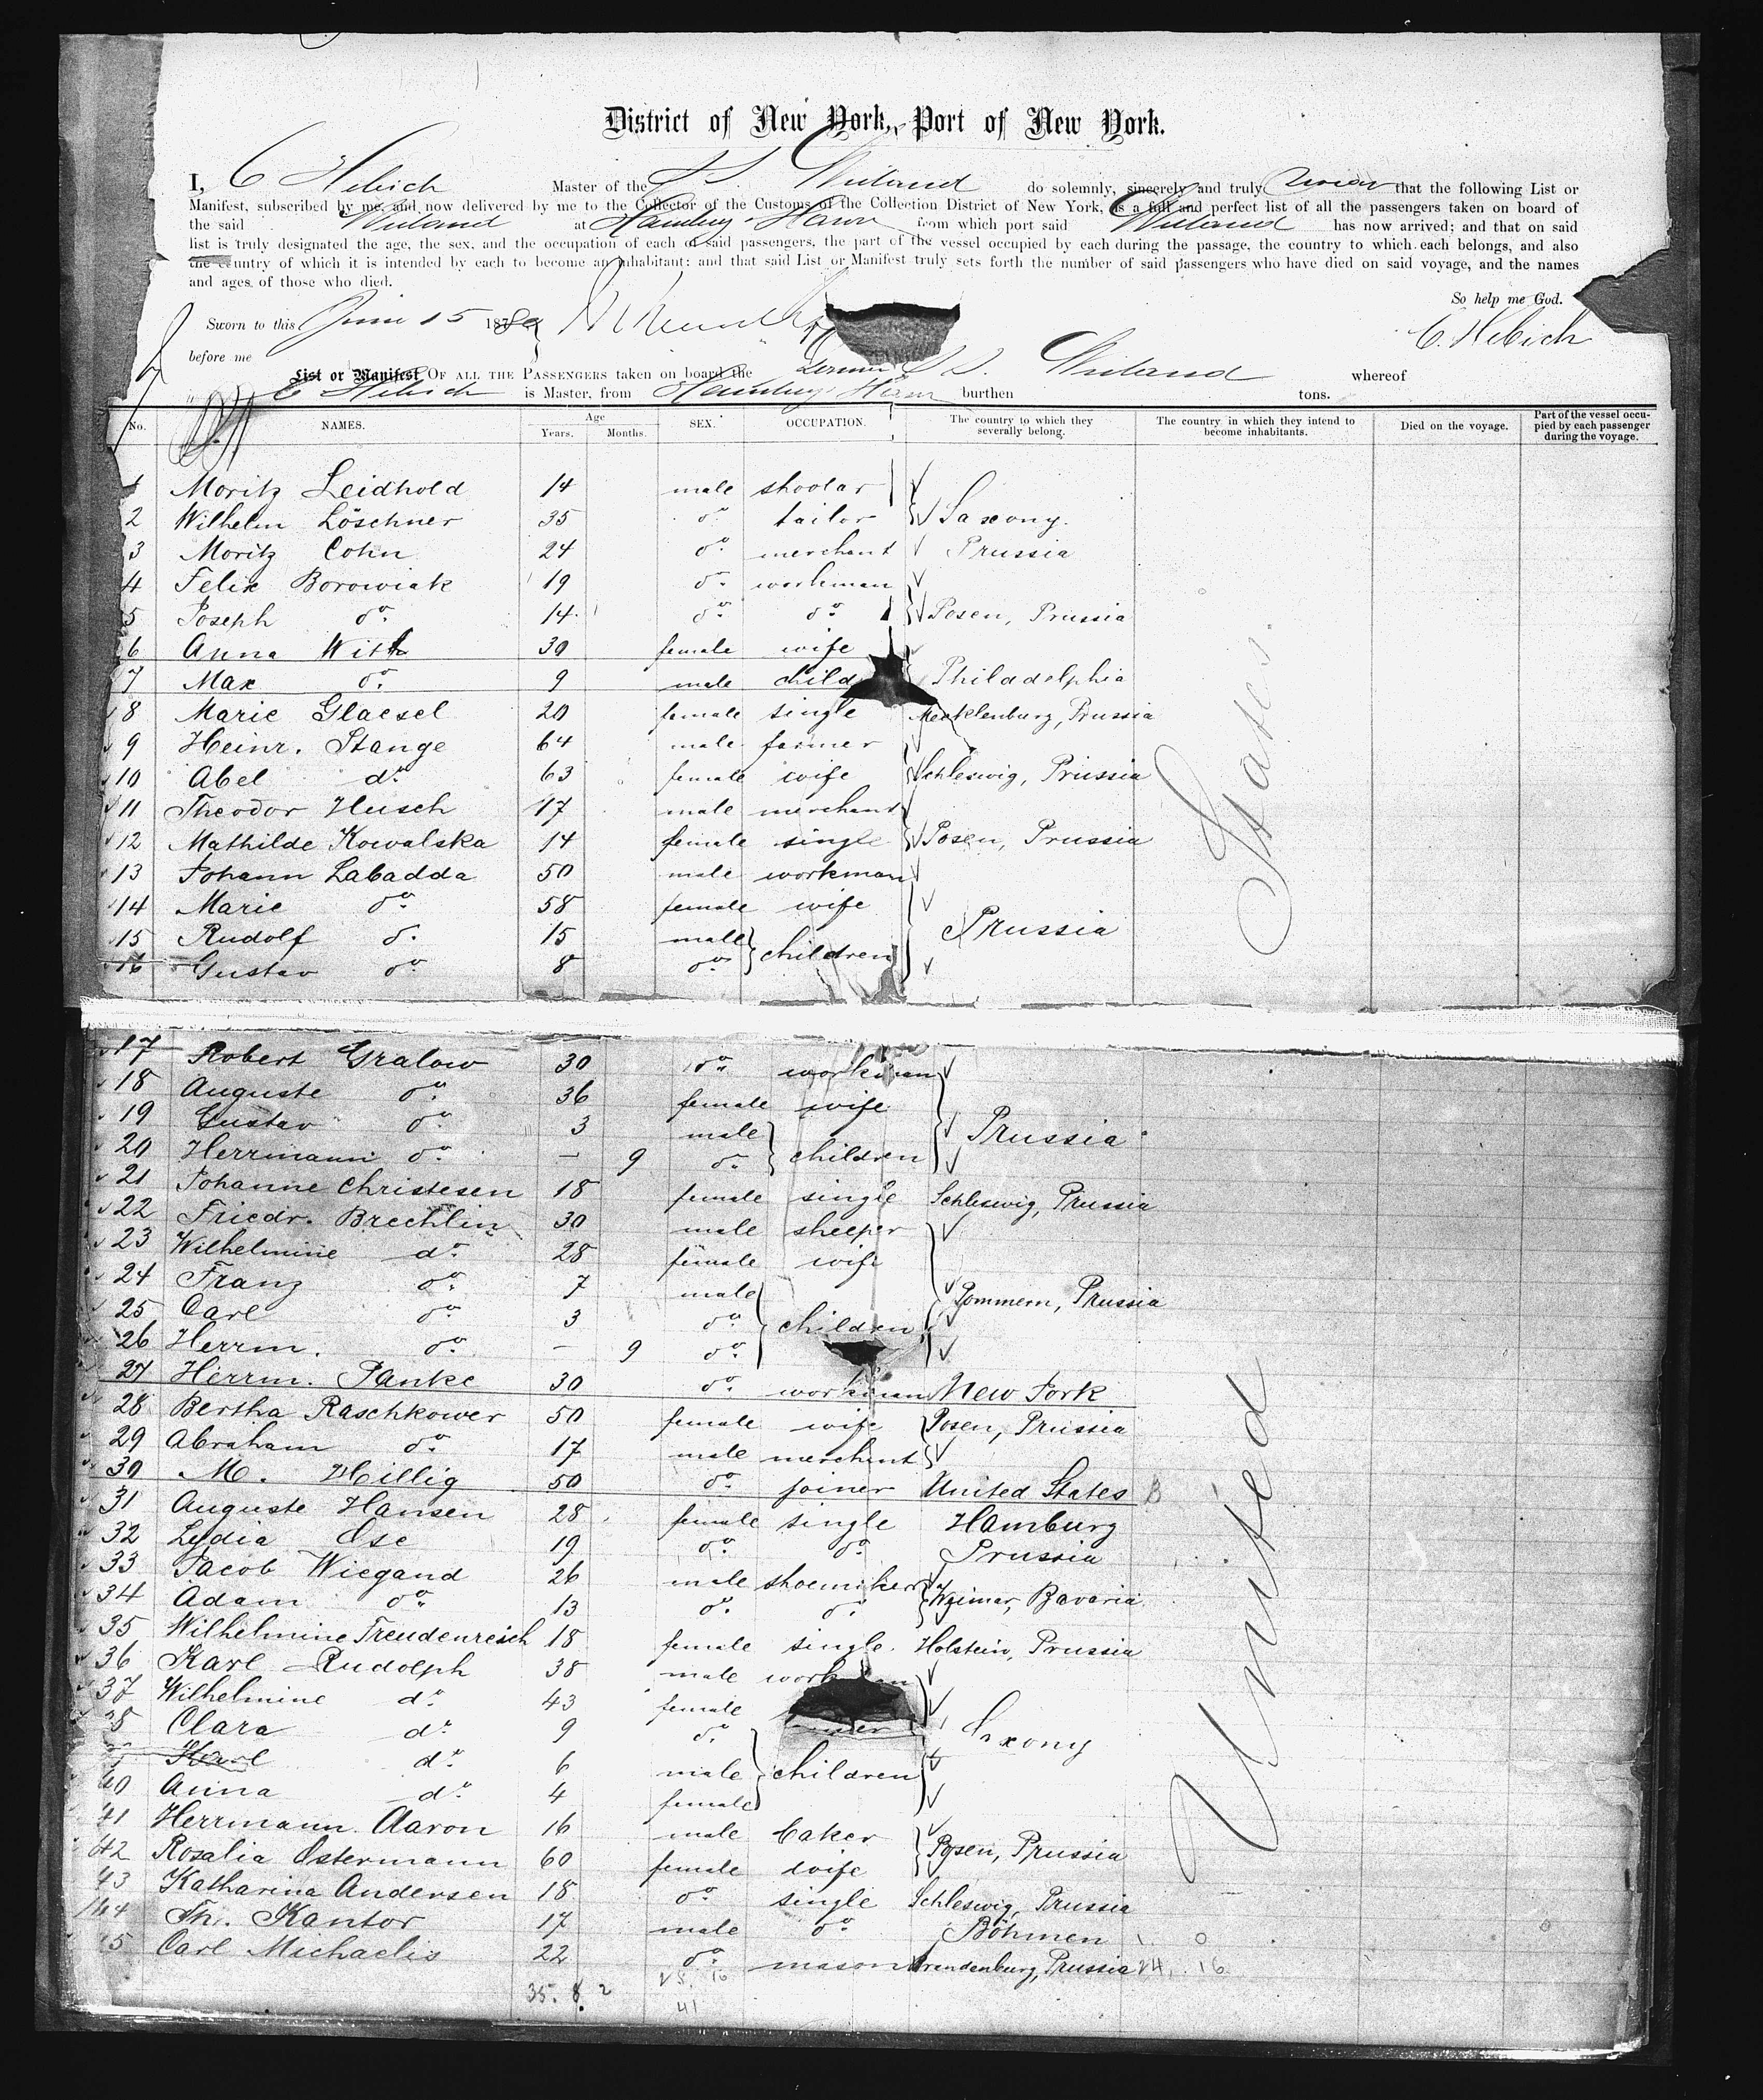 District of New York, Port of New York.
I, C Hebich Master of the S S. Wieland do solemnly, sincerely and truly swear that the following List or
Manifest, subscribed by me, and now delivered by me to the Collector of the Customs of the Collection District of New York, is a full and perfect list of all the passengers taken on board of
the said Wieland at Hamburg - Havre from which port said Wieland has now arrived; and that on said
list is truly designated the age, the sex, and the occupation of each of said passengers, the part of the vessel occupied by each during the passage, the country to which each belongs, and also
the country of which it is intended by each to become an inhabitant; and that said List or Manifest truly sets forth the number of said passengers who have died on said voyage, and the names
and ages of those who died.
So help me God.
Sworn to this June 15 1880
C. Hebich
before me
List or Manifest OF ALL THE PASSENGERS taken on board the German S S. Wieland whereof
C Hebich is Master, from Hamburg Havre burthen tons.
No. NAMES. Age Years. Months. SEX. OCCUPATION. The country to which they severally belong. The country in which they intend to become inhabitants. Died on the voyage. Part of the vessel occupied by each passenger during the voyage.
1 Moritz Leidhold 14 male shoolar
2 Wilhelm Löschner 35 do tailor Saxony.
3 Moritz Cohn 24 do merchant Prussia
4 Felix Borowiak 19 do workman
5 Joseph do 14 do do Posen, Prussia
6 Anna Witt 30 female wife
7 Max do 9 male child Philadelphia
8 Marie Glaesel 20 female single Mecklenburg, Prussia
9 Heinr. Stange 64 male farmer
10 Abel do 63 female wife Schleswig, Prussia
11 Theodor Husch 17 male merchant
12 Mathilde Kowalska 14 female single Posen, Prussia
13 Johann Labadda 50 male workman
14 Marie do 58 female wife Prussia
15 Rudolf do 15 male children
16 Gustav do 8 do
17 Robert Gralow 30 do workman
18 Auguste do 36 female wife
19 Gustav do 3 male Prussia
20 Herrmann do — 9 do children
21 Johanne Christesen 18 female single Schleswig, Prussia
22 Friedr. Brechlin 30 male sheeper
23 Wilhelmine do 28 female wife
24 Franz do 7 male Pommern, Prussia
25 Carl do 3 do children
26 Herrm. do — 9 do
27 Herrm. Panke 30 do workman New York
28 Bertha Raschkower 50 female wife Posen, Prussia
29 Abraham do 17 male merchant
30 M. Hillig 50 do joiner United States B
31 Auguste Hansen 28 female single Hamburg
32 Lydia Ose 19 do do Prussia
33 Jacob Wiegand 26 male shoemaker
34 Adam do 13 do do Weimar, Bavaria
35 Wilhelmine Freudenreich 18 female single Holstein, Prussia
36 Karl Rudolph 38 male workman
37 Wilhelmine do 43 female
38 Clara do 9 do Saxony
Karl do 6 male children
40 Anna do 4 female
41 Herrmann Aaron 16 male baker
42 Rosalia Ostermann 60 female wife Posen, Prussia
43 Katharina Andersen 18 do single Schleswig, Prussia
44 Th. Kantor 17 male do Böhmen
45 Carl Michaelis 22 do mason Brandenburg, Prussia 24. 16
35. 8. 2
41
United States.